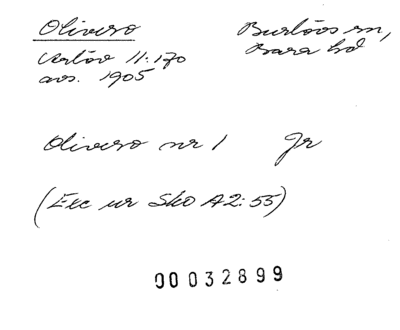 Olivero
Burlövs sn,
Bara hd
Arlöv 11:170
avs. 1905
Olivero nr 1 Jr
(Exc ur Sko A2:55)
00032899